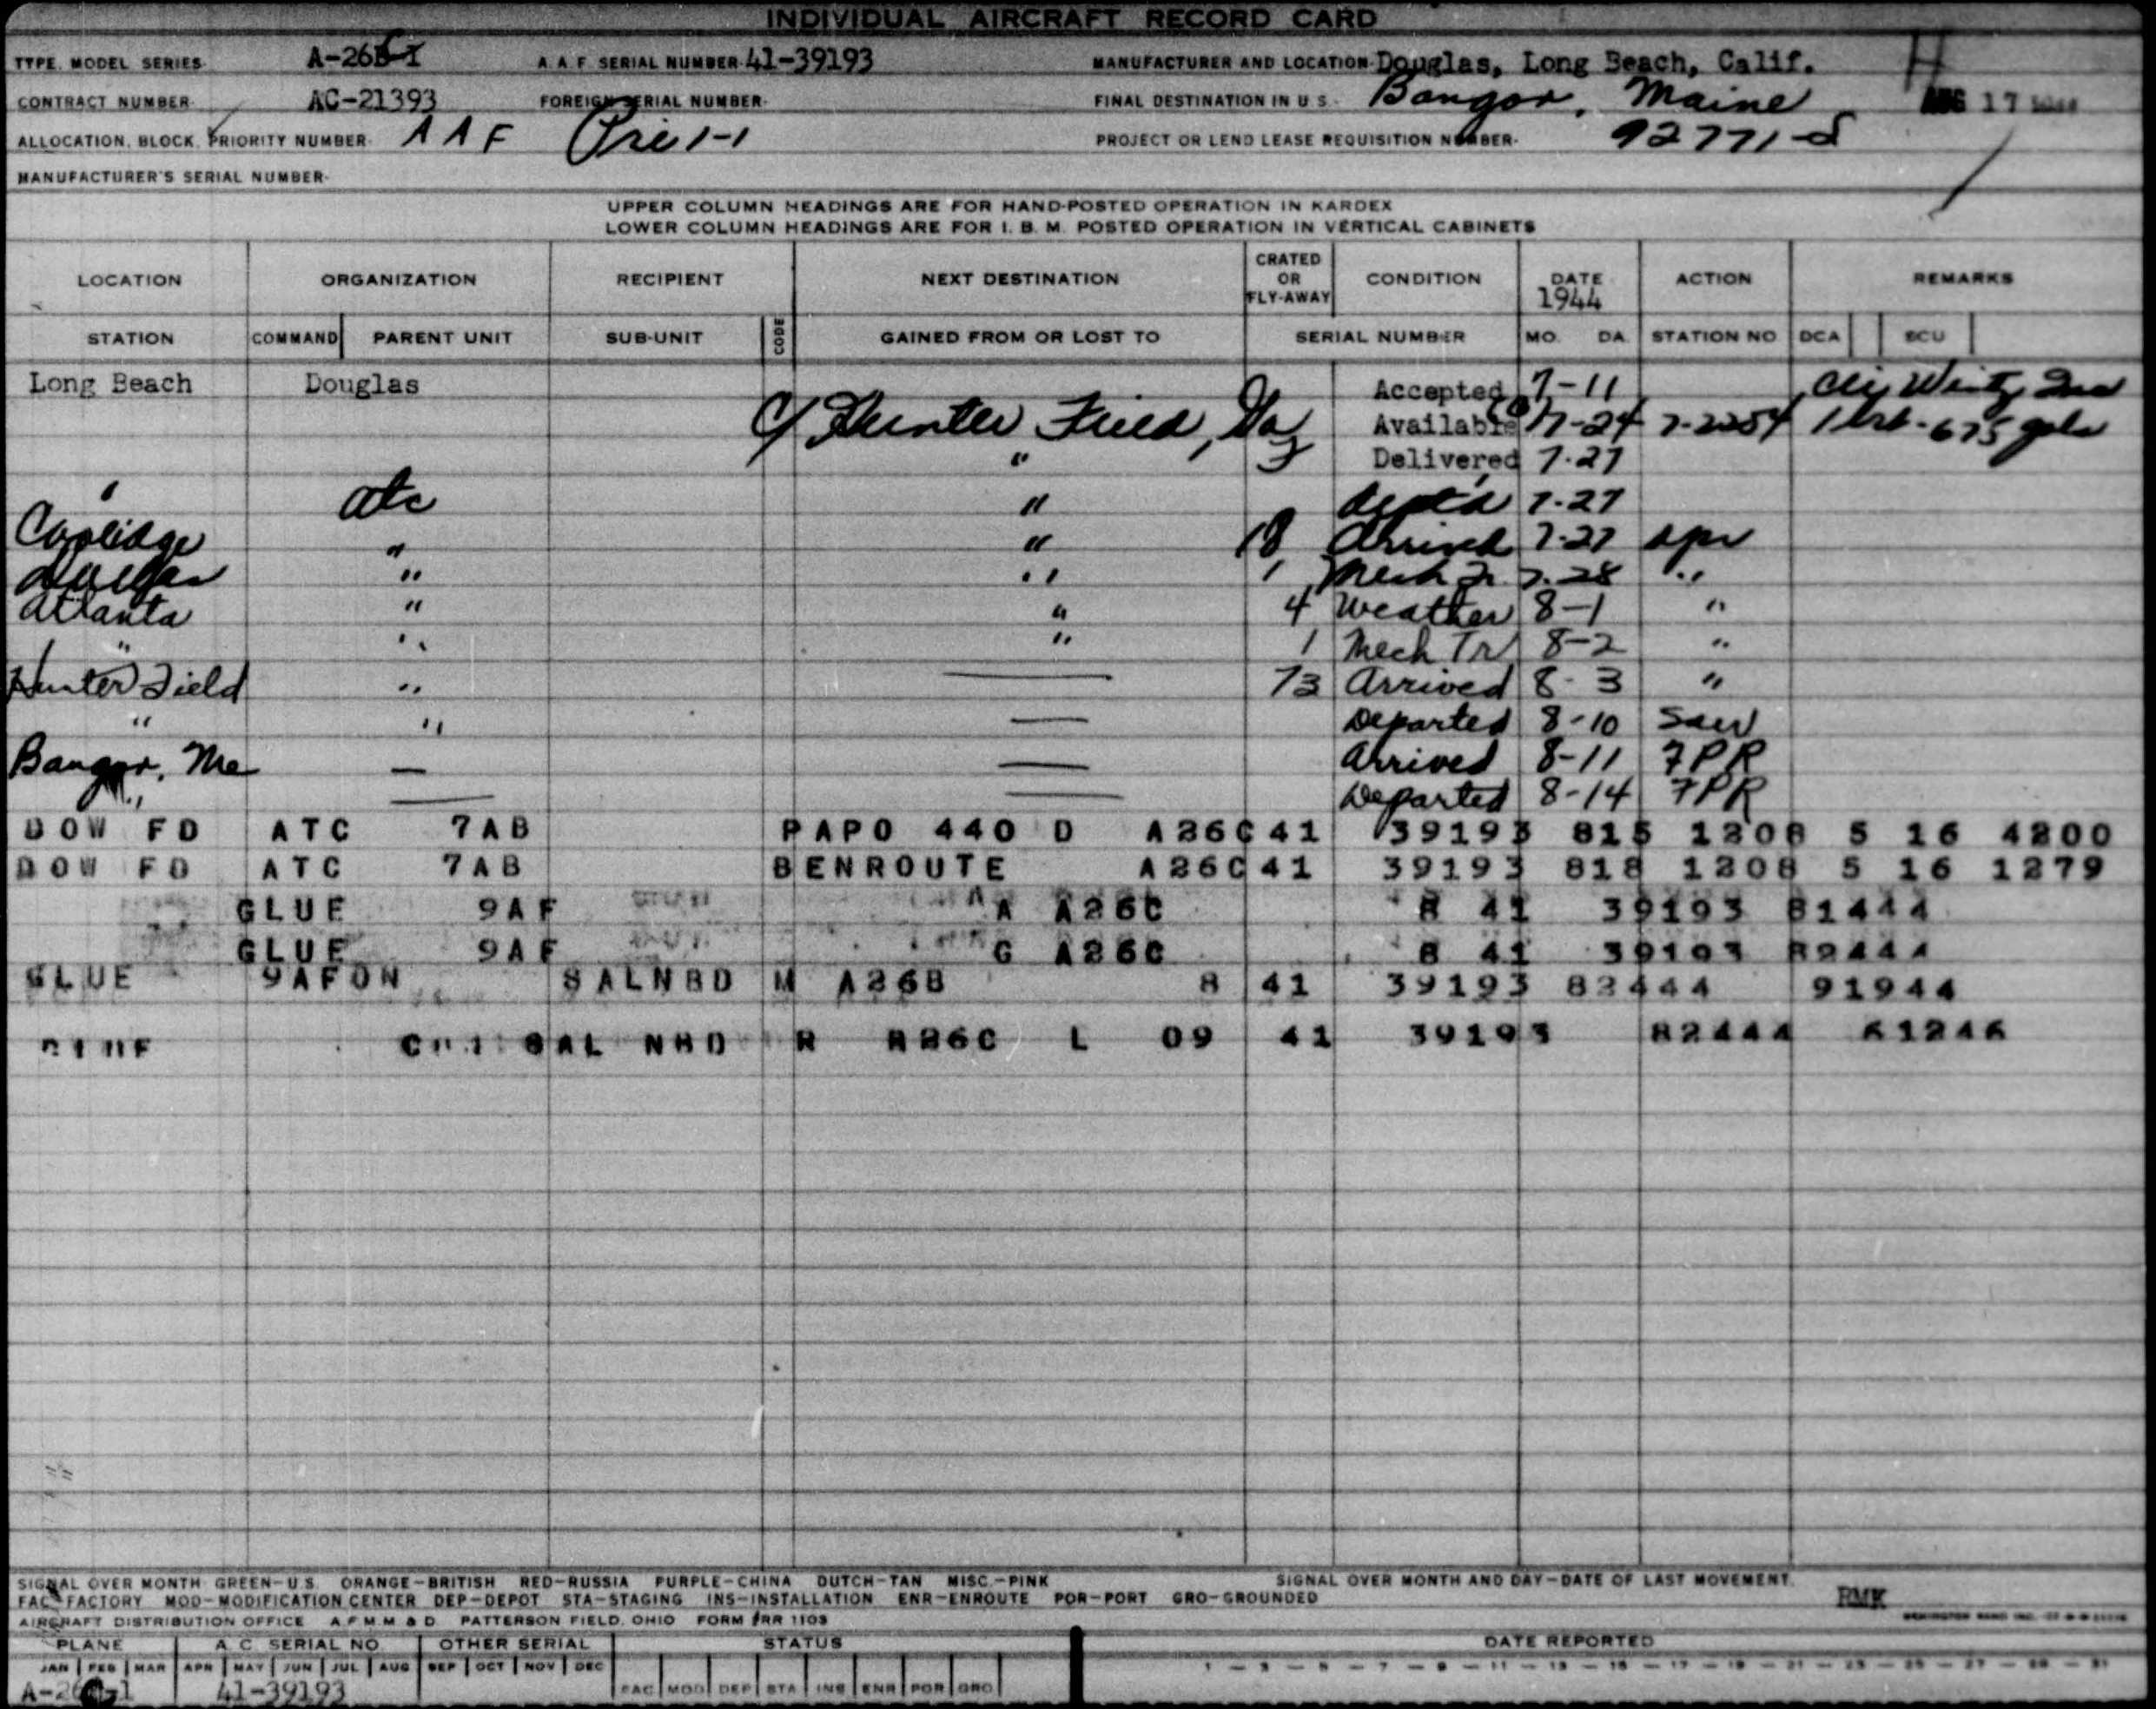 INDIVIDUAL AIRCRAFT RECORD CARD
TYPE, MODEL SERIES A-26 A.A.F. SERIAL NUMBER 41-39193 MANUFACTURER AND LOCATION Douglas, Long Beach, Calif.
CONTRACT NUMBER AC-21393 FOREIGN SERIAL NUMBER FINAL DESTINATION IN U.S. Bangor, Maine AUG 17
ALLOCATION, BLOCK, PRIORITY NUMBER AAF Pri 1-1 PROJECT OR LEND LEASE REQUISITION NUMBER 92771-S
MANUFACTURER'S SERIAL NUMBER
UPPER COLUMN HEADINGS ARE FOR HAND-POSTED OPERATION IN KARDEX
LOWER COLUMN HEADINGS ARE FOR I. B. M. POSTED OPERATION IN VERTICAL CABINETS
LOCATION ORGANIZATION RECIPIENT NEXT DESTINATION CRATED OR FLY-AWAY CONDITION DATE 1944 ACTION REMARKS
STATION COMMAND PARENT UNIT SUB-UNIT CODE GAINED FROM OR LOST TO SERIAL NUMBER MO. DA. STATION NO DCA SCU
Long Beach Douglas Accepted 7-11
Hunter Field, Ga Available 7-24 675 gals
" Delivered 7-27
atc " 7-27
Coolidge " " 18 Arrived 7-27
" " 1 Mech Tr 7-28 "
Atlanta " " 4 Weather 8-1 "
" " " 1 Mech Tr 8-2 "
Hunter Field " — 73 Arrived 8-3 "
" " — Departed 8-10 Sav
Bangor, Me — — Arrived 8-11 7PR
" — — Departed 8-14 7PR
DOW FD ATC 7AB PAPO 440 D A26C 41 39193 815 1208 5 16 4200
DOW FD ATC 7AB BENROUTE A26C 41 39193 818 1208 5 16 1279
GLUE 9AF A A26C 8 41 39193 81444
GLUE 9AF G A26C 8 41 39193 82444
GLUE 9AFON SALNBD M A26B 8 41 39193 82444 91944
SAL NBD R L 09 41 39193 82444 61246
SIGNAL OVER MONTH GREEN-U.S. ORANGE-BRITISH RED-RUSSIA PURPLE-CHINA DUTCH-TAN MISC.-PINK SIGNAL OVER MONTH AND DAY-DATE OF LAST MOVEMENT.
FAC-FACTORY MOD-MODIFICATION CENTER DEP-DEPOT STA-STAGING INS-INSTALLATION ENR-ENROUTE POR-PORT GRO-GROUNDED RMK
AIRCRAFT DISTRIBUTION OFFICE A.F.M.M & D. PATTERSON FIELD, OHIO FORM #RR 1103
PLANE A C SERIAL NO OTHER SERIAL STATUS DATE REPORTED
JAN FEB MAR APR MAY JUN JUL AUG SEP OCT NOV DEC 1 - 3 - 5 - 7 - 9 - 11 - 13 - 15 - 17 - 19 - 21 - 23 - 25 - 27 - 29 - 31
41-39193 FAC MOD DEP STA INS ENR POR GRO